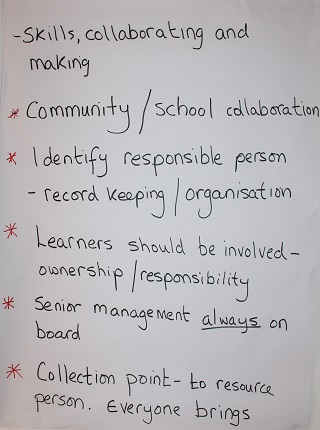 -Skills, collaborating and
making
* Community / school collaboration
* Identify responsible person
- record keeping / organisation
* Learners should be involved -
ownership / responsibility
* Senior management always on
board
* Collection point - to resource
person. Everyone brings